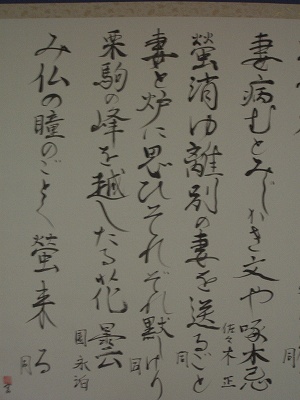 同
妻病むとみじかき文や啄木忌
佐々木 正
螢消ゆ離別の妻を送るごと
同
妻と炉に思ひそれぞれ黙しけり
同
栗駒の峰を越したる花曇
国永泊
み仏の瞳のごとく螢来る
同